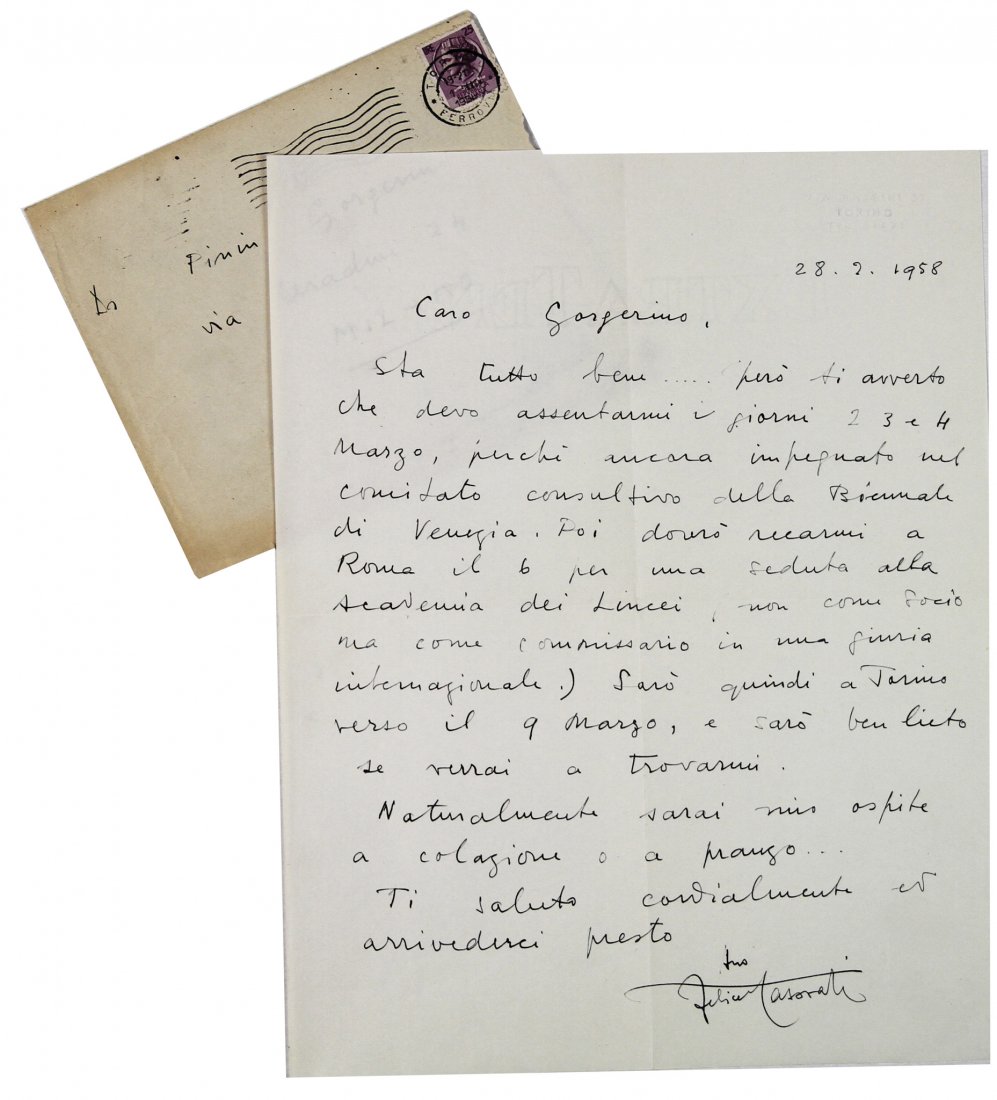 TORINO
FERROVIA
Dr Pinin
via
28. 2. 1958
Caro Gorgerino,
Sta tutto bene ..... però ti avverto
che devo assentarmi i giorni 2 3 e 4
Marzo, perchè ancora impegnato nel
comitato consultivo della Biennale
di Venezia. Poi dovrò recarmi a
Roma il 6 per una seduta alla
Academia dei Lincei, non come socio
ma come commissario in una giuria
internazionale.) Sarò quindi a Torino
verso il 9 Marzo, e sarò ben lieto
se verrai a trovarmi.
Naturalmente sarai mio ospite
a colazione o a pranzo...
Ti saluto cordialmente ed
arrivederci presto
tuo
Felice Casorati